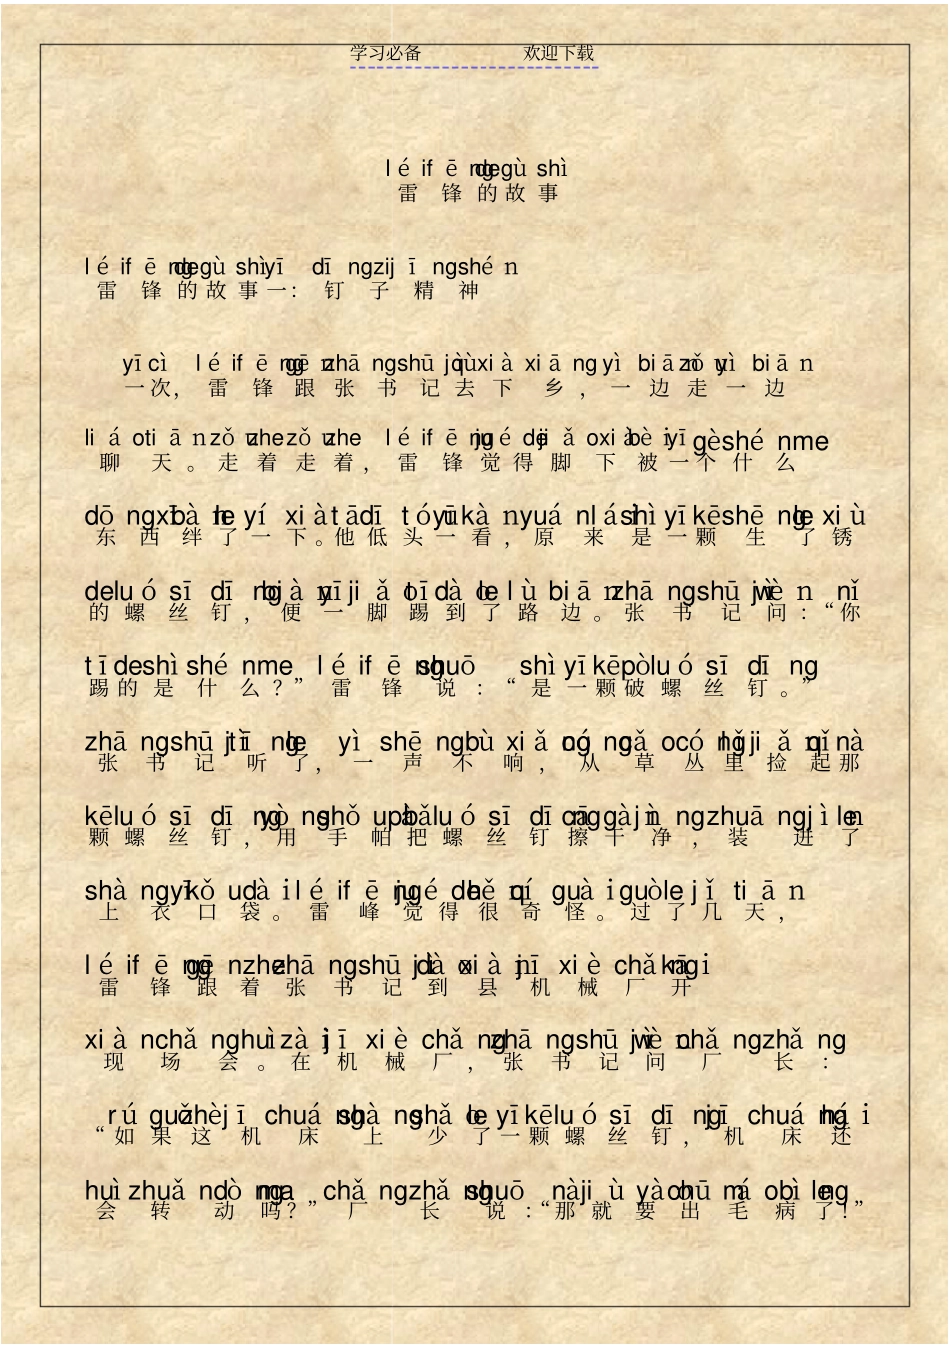 学习必备 欢迎下载
léifēngdegùshì
雷锋的故事
léifēngdegùshìyī dīngzijīngshén
雷锋的故事一：钉子精神
yīcì léifēnggēnzhāngshūjìqùxiàxiāng yì biānzǒuyì biān
一次，雷锋跟张书记去下乡，一边走一边
liáotiānzǒuzhezǒuzhe léifēngjuédejiǎoxiàbèiyīgèshénme
聊天。走着走着，雷锋觉得脚下被一个什么
dōngxībànleyíxiàtādītóuyīkànyuánláishìyīkēshēnglexiù
东西绊了一下。他低头一看，原来是一颗生了锈
deluósīdīngbiànyījiǎotīdàolelùbiānzhāngshūjìwènnǐ
的螺丝钉，便一脚踢到了路边。张书记问：“你
tīdeshìshénme léifēngshuō shìyīkēpòluósīdīng
踢的是什么？”雷锋说：“是一颗破螺丝钉。”
zhāngshūjìtīngle yìshēngbùxiǎngcóngcǎocónglǐjiǎnqǐnà
张书记听了，一声不响，从草丛里捡起那
kēluósīdīngyòngshǒupàbǎluósīdīngcāgānjìngzhuāngjìnle
颗螺丝钉，用手帕把螺丝钉擦干净，装进了
shàngyīkǒudàiléifēngjuédehěnqíguàiguòlejǐtiān
上衣口袋。雷峰觉得很奇怪。过了几天，
léifēnggēnzhezhāngshūjìdàoxiànjīxièchǎngkāi
雷锋跟着张书记到县机械厂开
xiànchǎnghuìzàijīxièchǎngzhāngshūjìwènchǎngzhǎng
现场会。在机械厂，张书记问厂长：
rúguǒzhèjīchuángshàngshǎoleyīkēluósīdīngjīchuánghái
“如果这机床上少了一颗螺丝钉，机床还
huìzhuǎndòngma chǎngzhǎngshuō nàjiùyàochūmáobìngle
会转动吗？”厂长说：“那就要出毛病了！”